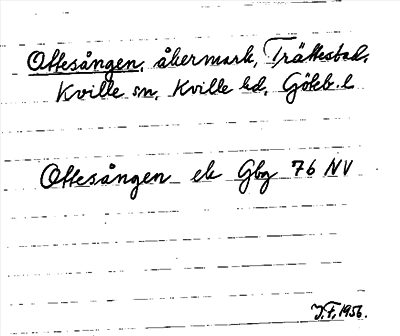 Ottesången, åkermark, Trättestad,
Kville sn, Kville hd, Göteb. l
Ottesången ek Gbg 76 NV
J.F. 1956.